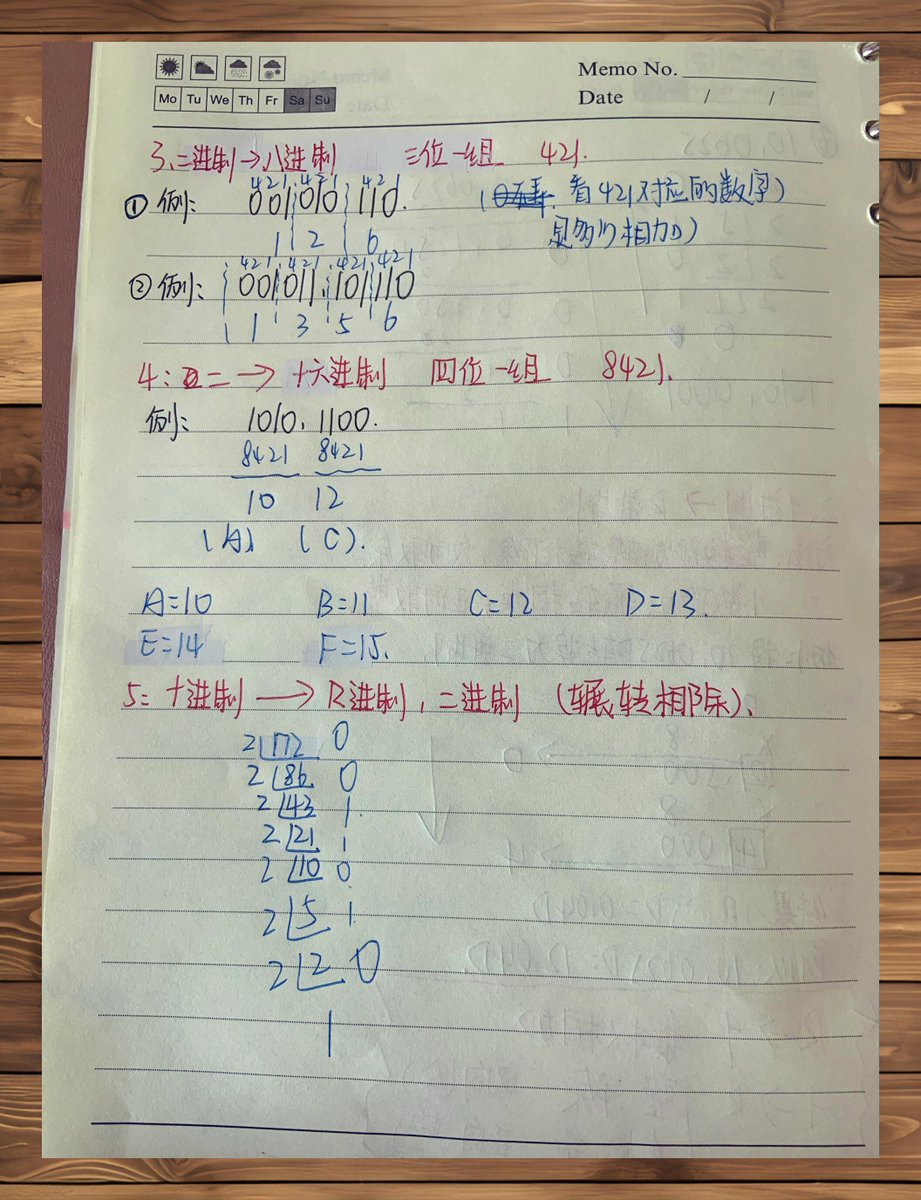 Memo No.
Mo Tu We Th Fr Sa Su
Date / /
3、二进制→八进制 三位一组 421.
421 421 421
① 例: 001 010 110. (看421对应的数字)
1 2 6 是多少相加)
421 421 421 421
② 例: 001 011. 101 110
1 3 5 6
4: 二→十六进制 四位一组 8421.
例: 1010. 1100.
8421 8421
10 12
(A) (C).
A=10 B=11 C=12 D=13.
E=14 F=15.
5= 十进制→R进制, 二进制 (辗转相除)、
2 172 0
2 86 0
2 43 1
2 21 1
2 10 0
2 5 1
2 2 0
1